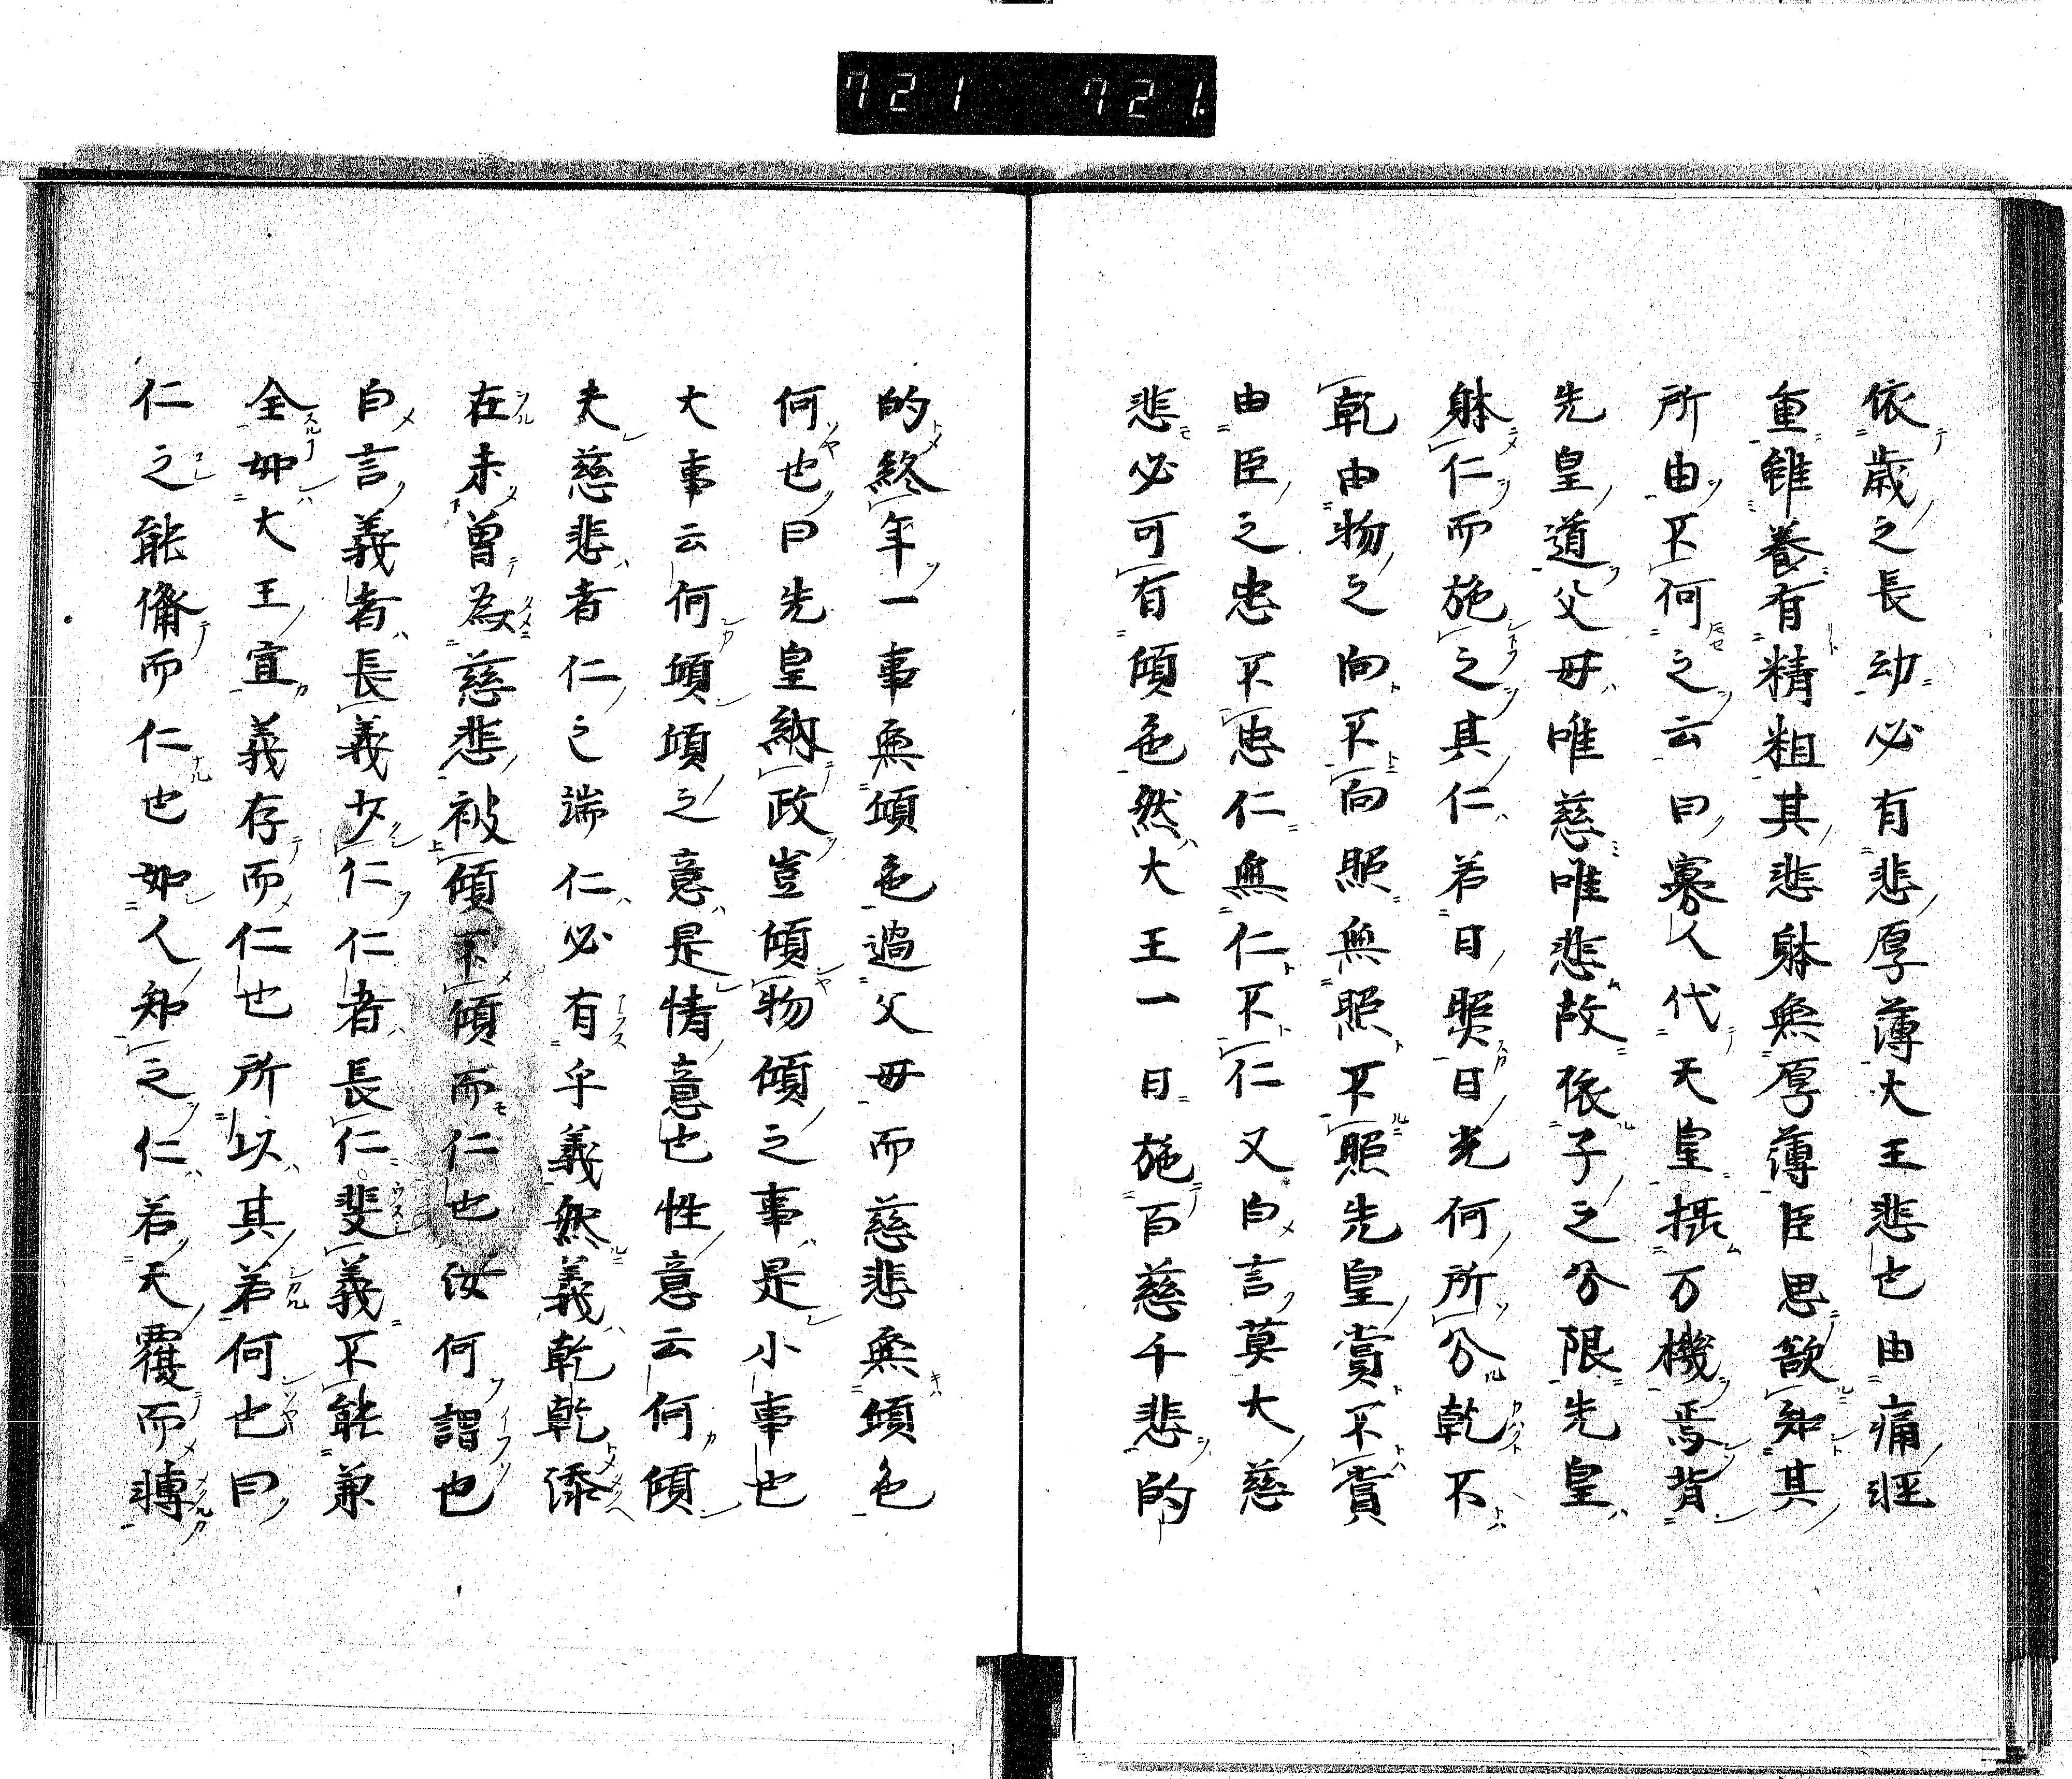 721 721.
依歳之長幼必有悲厚薄大王悲也由痛軽
重雖養有精粗其悲躰無厚薄臣思欲知其
所由不何之云曰寡人代天皇摂万機焉背
先皇道父母唯慈唯悲故依子之分限先皇
躰仁而施之其仁若日照日光何所分乾不
乾由物之向不向照無照不照先皇賞不賞
由臣之忠不忠仁無仁不仁又白言莫大慈
悲必可有傾色然大王一日施百慈千悲的
的終年一事無傾色過父母而慈悲無傾色
何也曰先皇納政豈傾物傾之事是小事也
大事云何傾傾之意是情意也性意云何傾
夫慈悲者仁之端仁必有乎義然義乾乾添
在未曽為慈悲被傾不傾而仁也汝何謂也
白言義者長義少仁仁者長仁斐義不能兼
全如大王宜義存而仁也所以其若何也曰
仁之能備而仁也如人知之仁若天覆而轉